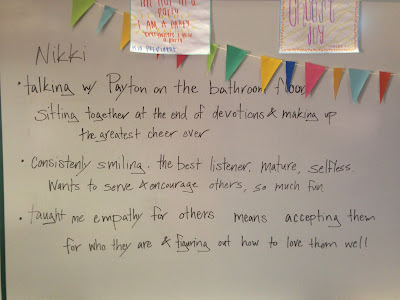 I AM A PARTY
Nikki
• talking w/ Payton on the bathroom floor
sitting together at the end of devotions & making up
the greatest cheer ever
• consistenly smiling. the best listener, mature, selfless.
Wants to serve & encourage others, so much fun
• taught me empathy for others means accepting them
for who they are & figuring out how to love them well